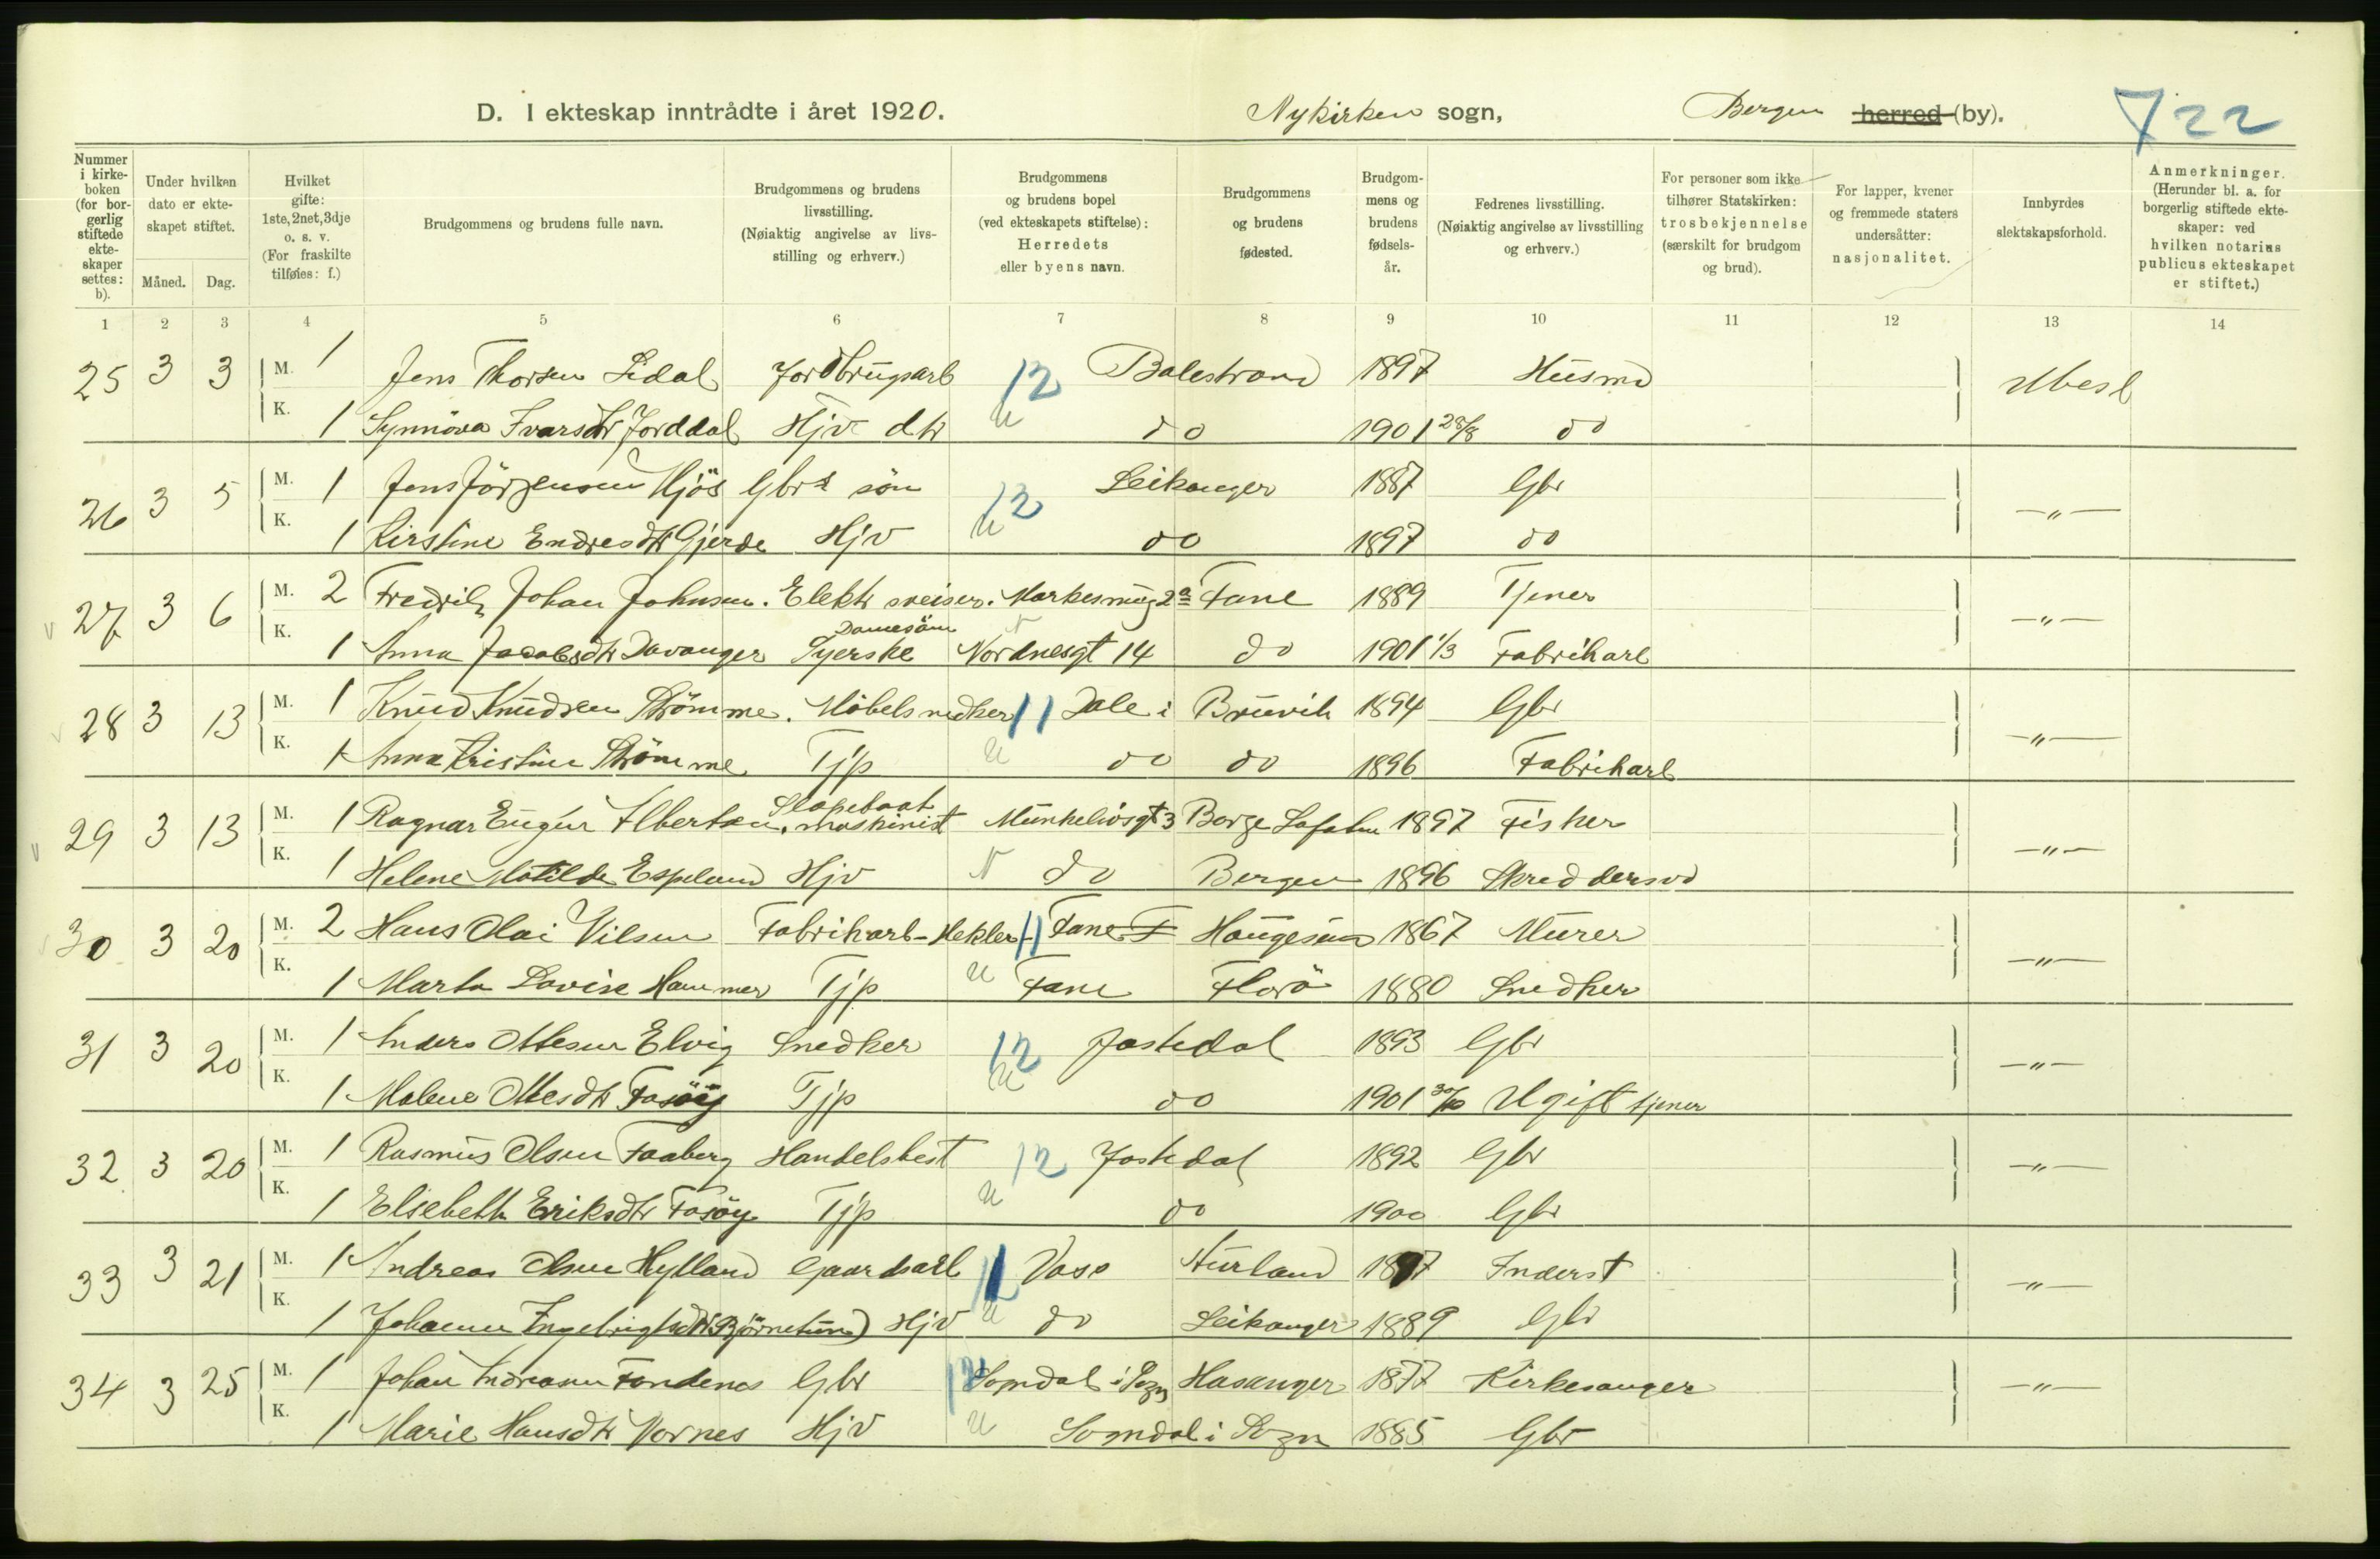 D. I ekteskap inntrådte i året 1920. Nykirken sogn, Bergen herred (by). 722
Nummer i kirkeboken (for borgerlig stiftede ekteskaper settes: b). Under hvilken dato er ekteskapet stiftet. Måned. Dag. Hvilket gifte: 1ste, 2net, 3dje o. s. v. (For fraskilte tilføies: f.) Brudgommens og brudens fulle navn. Brudgommens og brudens livsstilling. (Nøiaktig angivelse av livsstilling og erhverv.) Brudgommens og brudens bopel (ved ekteskapets stiftelse): Herredets eller byens navn. Brudgommens og brudens fødested. Brudgommens og brudens fødselsår. Fedrenes livsstilling. (Nøiaktig angivelse av livsstilling og erhverv.) For personer som ikke tilhører Statskirken: trosbekjennelse (særskilt for brudgom og brud). For lapper, kvener og fremmede staters undersåtter: nasjonalitet. Innbyrdes slektskapsforhold. Anmerkninger. (Herunder bl. a. for borgerlig stiftede ekteskaper: ved hvilken notarius publicus ekteskapet er stiftet.)
1 2 3 4 5 6 7 8 9 10 11 12 13 14
25 3 3 M. 1 Jens Thorsen Lidal Jordbrugsarb 12 Balestrand 1897 Husmd Ubesl
K. 1 Synnöva Ivarsdtr Jorddal Hjv dtr u do 1901 28/8 do
26 3 5 M. 1 Jens Jörgensen Hjös Gbrs sön 12 Leikanger 1887 Gbr —"—
K. 1 Kirstine Endresdtr Gjerde Hjv u do 1897 do
27 3 6 M. 2 Fredrik Johan Johnsen. Elektr sveiser. Markesmug 2a Fane 1889 Tjener —"—
K. 1 Anna Jacobsdtr Davanger Damesöm Syerske Nordnesgt 14 do 1901 1/3 Fabrikarb
28 3 13 M. 1 Knud Knudsen Strömme. Möbelsnedker 11 Dale i Bruvik 1894 Gbr —"—
K. 1 Anna Kristine Strömme Tjp u do do 1896 Fabrikarb
29 3 13 M. 1 Ragnar Eugen Albertsen, Slæpebaat maskinist Munkelivsgt 3 Borge Lofoten 1897 Fisker —"—
K. 1 Helene Matilde Espeland Hjv do Bergen 1896 Skreddersvd
30 3 20 M. 2 Hans Olai Nilsen Fabrikarb - Hekler - 11 Fane F Haugesun 1867 Murer —"—
K. 1 Marta Lovise Hammer Tjp u Fane Florö 1880 Snedker
31 3 20 M. 1 Anders Ottesen Elvig Snedker 12 Jostedal 1893 Gbr —"—
K. 1 Malene Ottesdtr Fasöy Tjp u do 1901 Ugift tjener
32 3 20 M. 1 Rasmus Olsen Faaberg Handelsbest 12 Jostedal 1892 Gbr —"—
K. 1 Elsebeth Eriksdtr Fasöy Tjp u do 1900 Gbr
33 3 21 M. 1 Andreas Olsen Hylland Gaardsarb Voss Aurland 1897 Inderst —"—
K. 1 Johanne Ingebrigtsdtr Björnetun Hjv u do Leikanger 1889 Gbr
34 3 25 M. 1 Johan Andreasen Fondenes Gbr 12 Sogndal i Sogn Hasanger 1877 Kirkesanger —"—
K. 1 Marie Hansdtr Vornes Hjv u Sogndal i Sogn 1885 Gbr